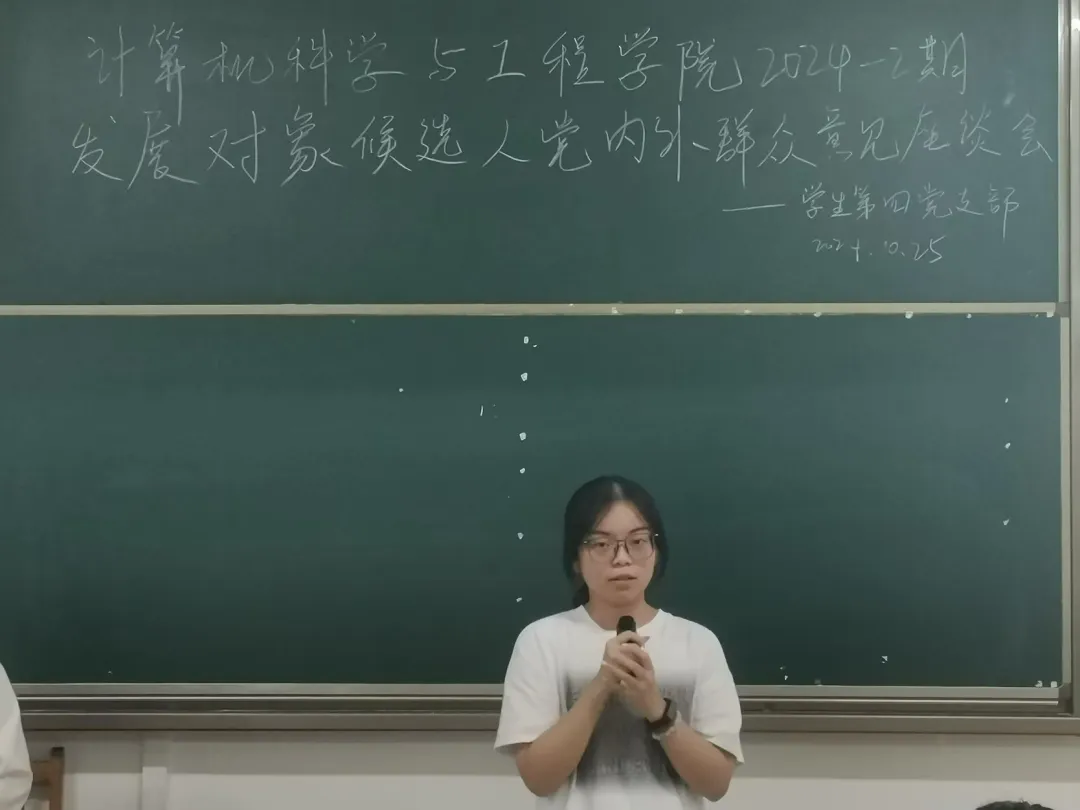 计算机科学与工程学院2024-2期
发展对象候选人党内外群众意见座谈会
——学生第四党支部
2024.10.25